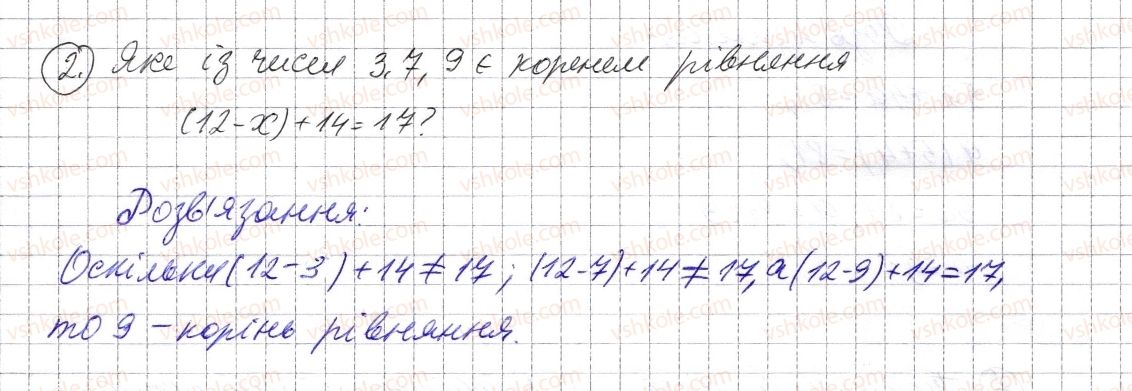 2. Яке із чисел 3, 7, 9 є коренем рівняння
(12-х)+14=17?
Розв'язання:
Оскільки (12-3)+14≠17; (12-7)+14≠17, а (12-9)+14=17,
то 9 - корінь рівняння.